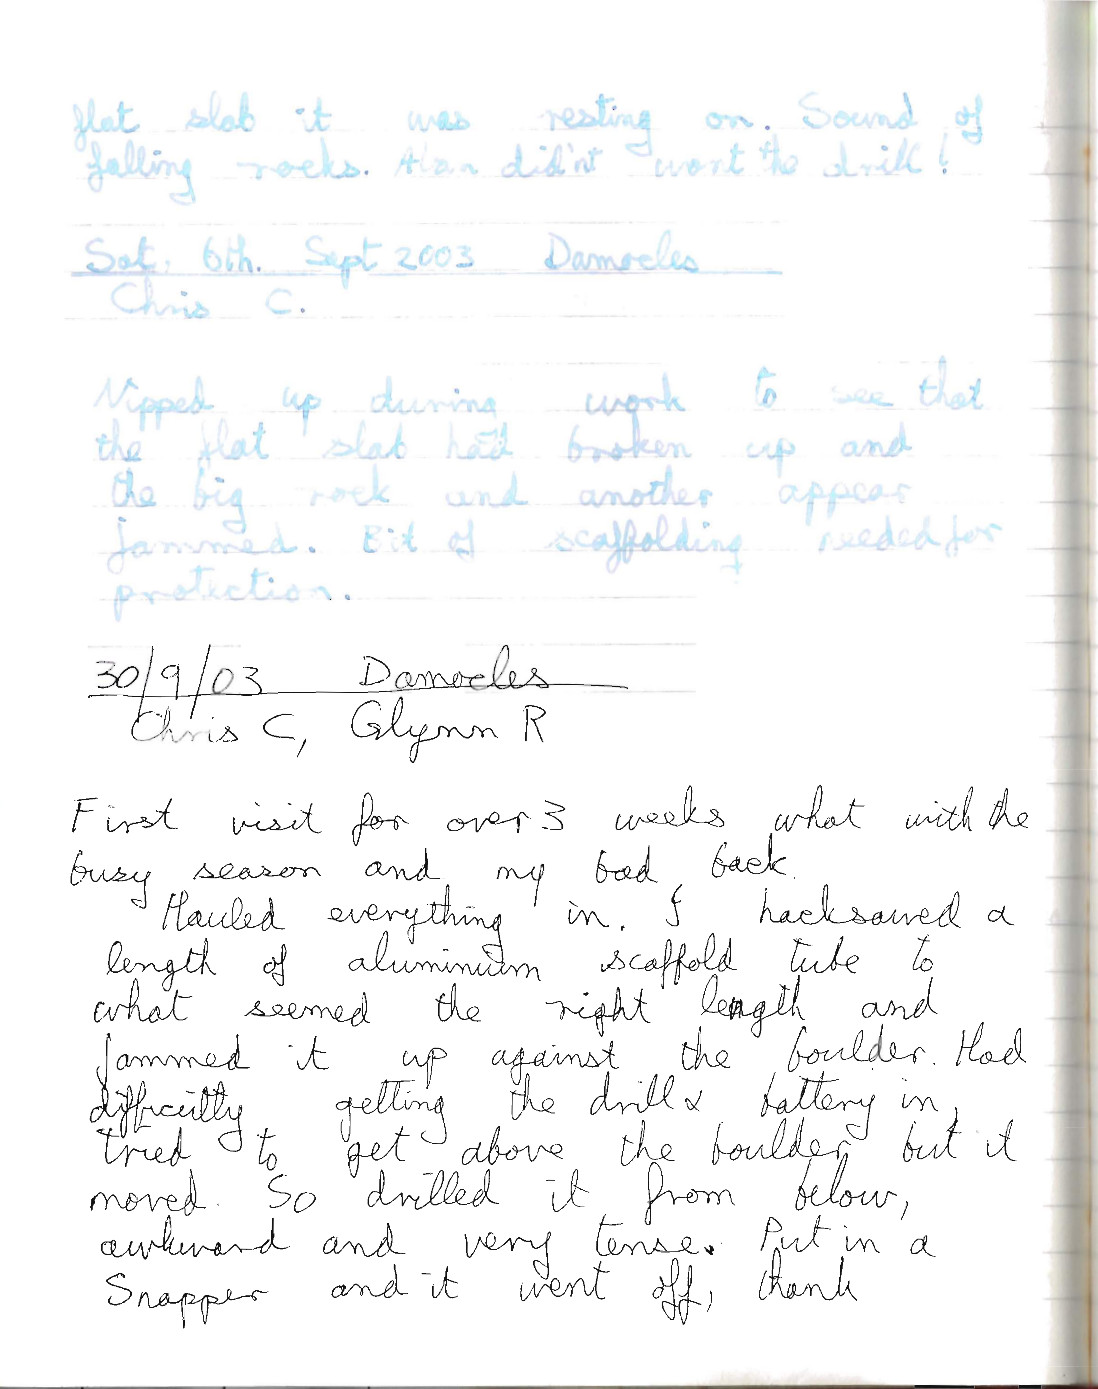 flat slab it was resting on. Sound of
falling rocks. Alan didn't want the drill!
Sat. 6th. Sept 2003 Damocles
Chris C.
Nipped up during work to see that
the flat slab had broken up and
the big rock and another appear
jammed. Bit of scaffolding needed for
protection.
30/9/03 Damocles
Chris C, Glynn R
First visit for over 3 weeks what with the
busy season and my bad back.
Hauled everything in. I hacksawed a
length of aluminium scaffold tube to
what seemed the right length and
jammed it up against the boulder. Had
difficulty getting the drill & battery in,
tried to get above the boulder but it
moved. So drilled it from below,
awkward and very tense. Put in a
Snapper and it went off, thank